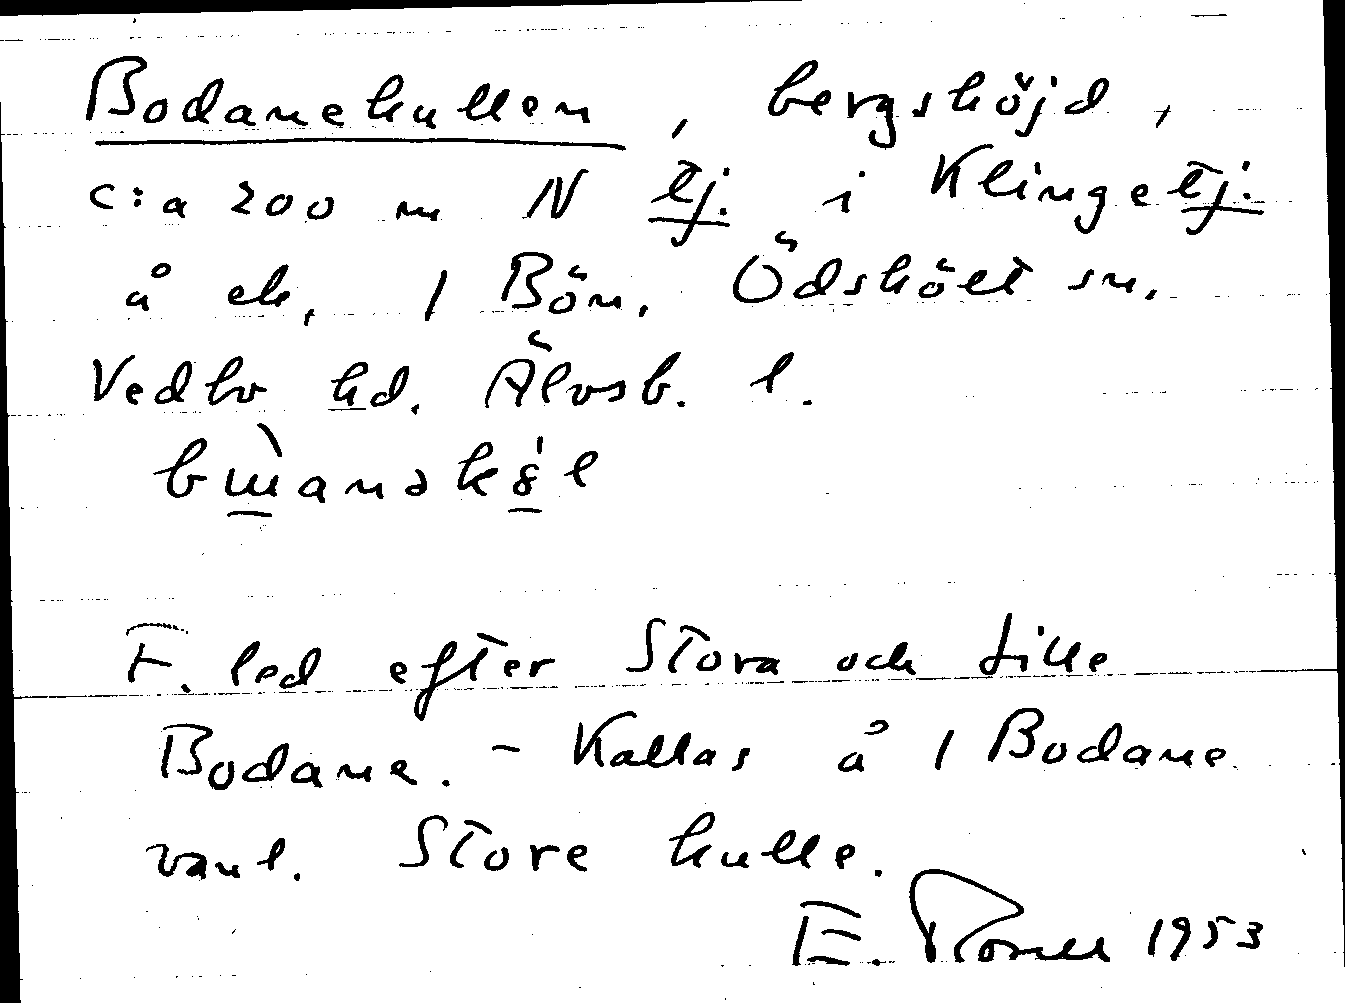 Bodanekullen, bergshöjd,
c:a 200 m N tj. i Klingetj.
å ek, 1 Bön, Ödskölt sn.
Vedbo hd. Älvsb. l.
F. led efter Stora och Lille
Bodane. - Kallas å 1 Bodane
vanl. Store kulle.
E. 1953